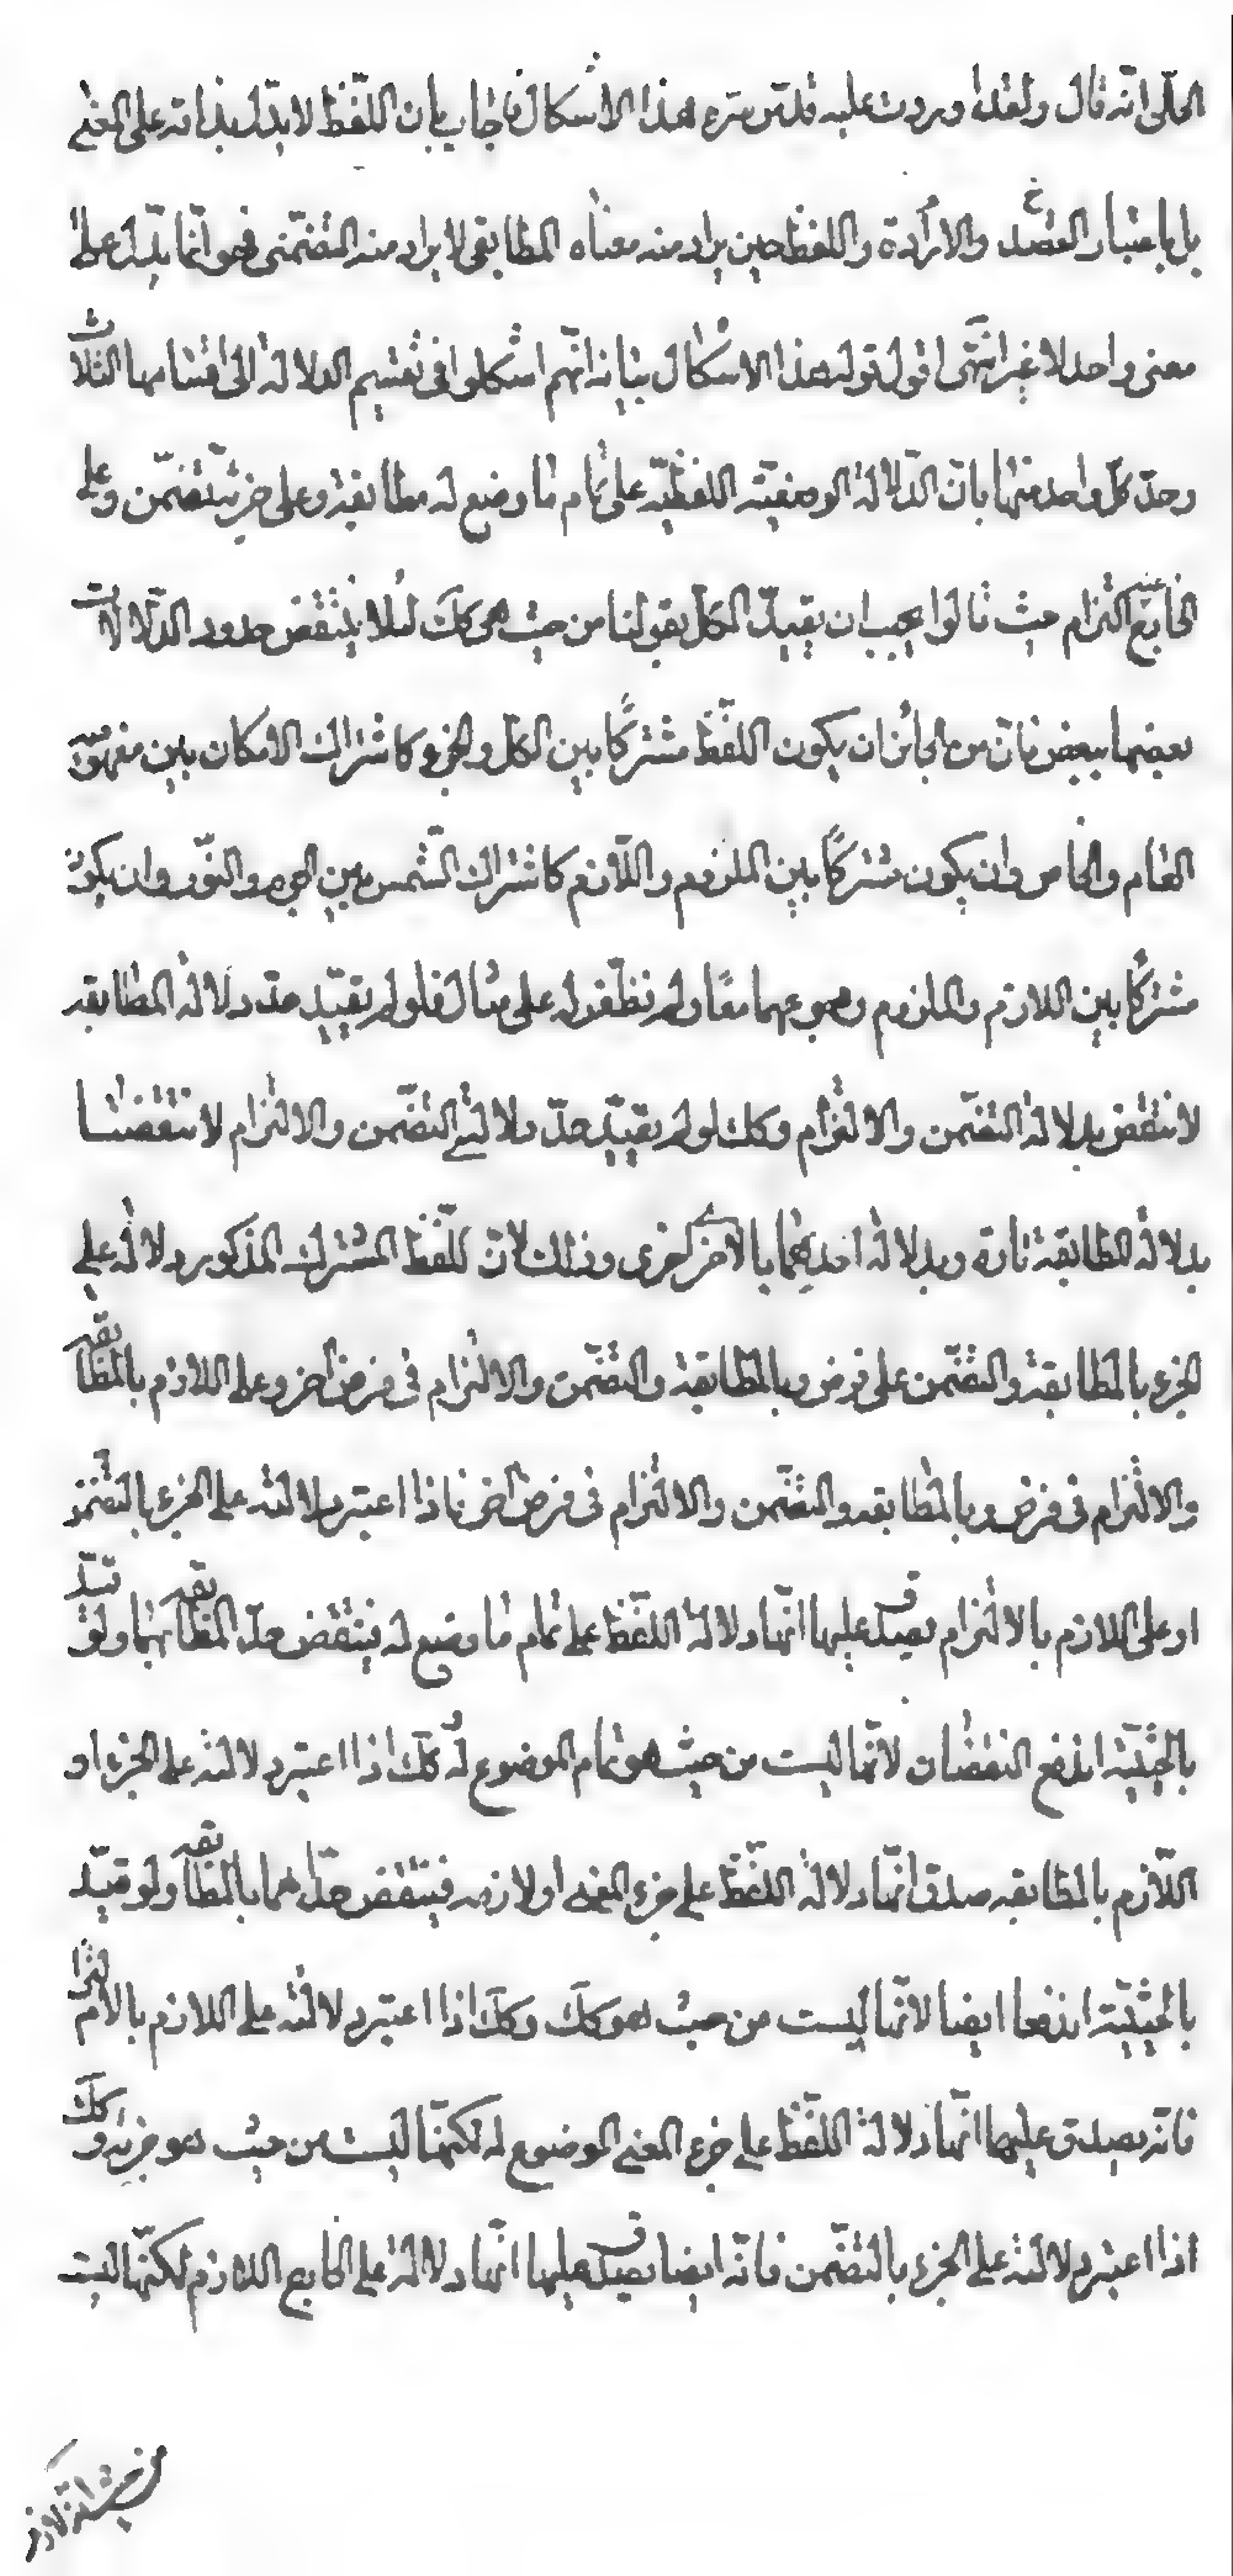 الحلّى انّه قال ولقد اوردت عليه قدّس سرّه هذا الاشكال فاجاب بان اللّفظ لا يدّل بذاته على المعنى
بل باعتبار القصد والارادة واللفظ حين يراد منه معناه المطابقى لا يراد منه التضمّنى فهو انّما يدّل على
معنى واحد لا غير انتهى اقول قوله هذا الاشكال بيانه انّهم اشكلوا فى تقسيم الدلالة الى اقسامها الثلاث
وحدّ كلّ واحد منها بانّ الدّلالة الوضعيّة اللفظيّة على تمام ما وضع له مطابقة وعلى جزئه تضمّن وعلى
الخارج عنه التزام حيث قالوا يجب ان يقيّد الكلّ بقولنا من حيث هى كك لئلا ينتقض حدود الدّلالات
بعضها ببعض فانّ من الجائز ان يكون اللّفظ مشتركًا بين الكلّ والجزء كاشتراك الامكان بين مفهومى
العام والخاص وان يكون مشتركًا بين الملزوم واللّازم كاشتراك الشّمس بين الجرم والنّور وان يكون
مشتركًا بين اللازم والملزوم ومجموعهما معًا ولم نظفر له على مثال فلو لم يقيّد حدّ دلالة المطابقه
لانتقض بدلالة التضّمن والالتزام وكك لو لم يقيّد حدّ دلالتى التضّمن والالتزام لانتقضتا
بدلالة المطابقة تارة وبدلالة احديهما بالاخرى اخرى وذلك لانّ للّفظ المشترك المذكور دلالة على
الجزء بالمطابقة والتضّمن على فرض وبالمطابقة والتضّمن والالتزام فى فرض اخر وعلى اللازم بالمطابقه
والالتزام فى فرض وبالمطابقه والتضّمن والالتزام فى فرض اخر فاذا اعتبر دلالته على الجزء بالتضّمن
او على اللازم بالالتزام يصدق عليها انّها دلالة اللّفظ على تمام ما وضع له فينتقض حدّ المطابقه بهما ولو قيّد
بالحيثيّة اندفع النقضان لانّها ليست من حيث هو تمام الموضوع له كك اذا اعتبر دلالته على الجزء او
اللّازم بالمطابقه صدق انّها دلالة اللّفظ على جزء المعنى او لازمه فينتقض حدّاهما بالمطابقه ولو قيّد
بالحيثيّة اندفعا ايضا لانّها ليست من حيث هو كك وكك اذا اعتبر دلالته على اللازم بالالتزام
فانّه يصدق عليها انّها دلالة اللّفظ على جزء المعنى الموضوع له لكنّها ليست من حيث هو جزئه وكك
اذا اعتبر دلالته على الجزء بالتضّمن فانّه ايضا يصدق عليها انّها دلالة على الخارج اللازم لكنّها ليست
من حيث انه لازم